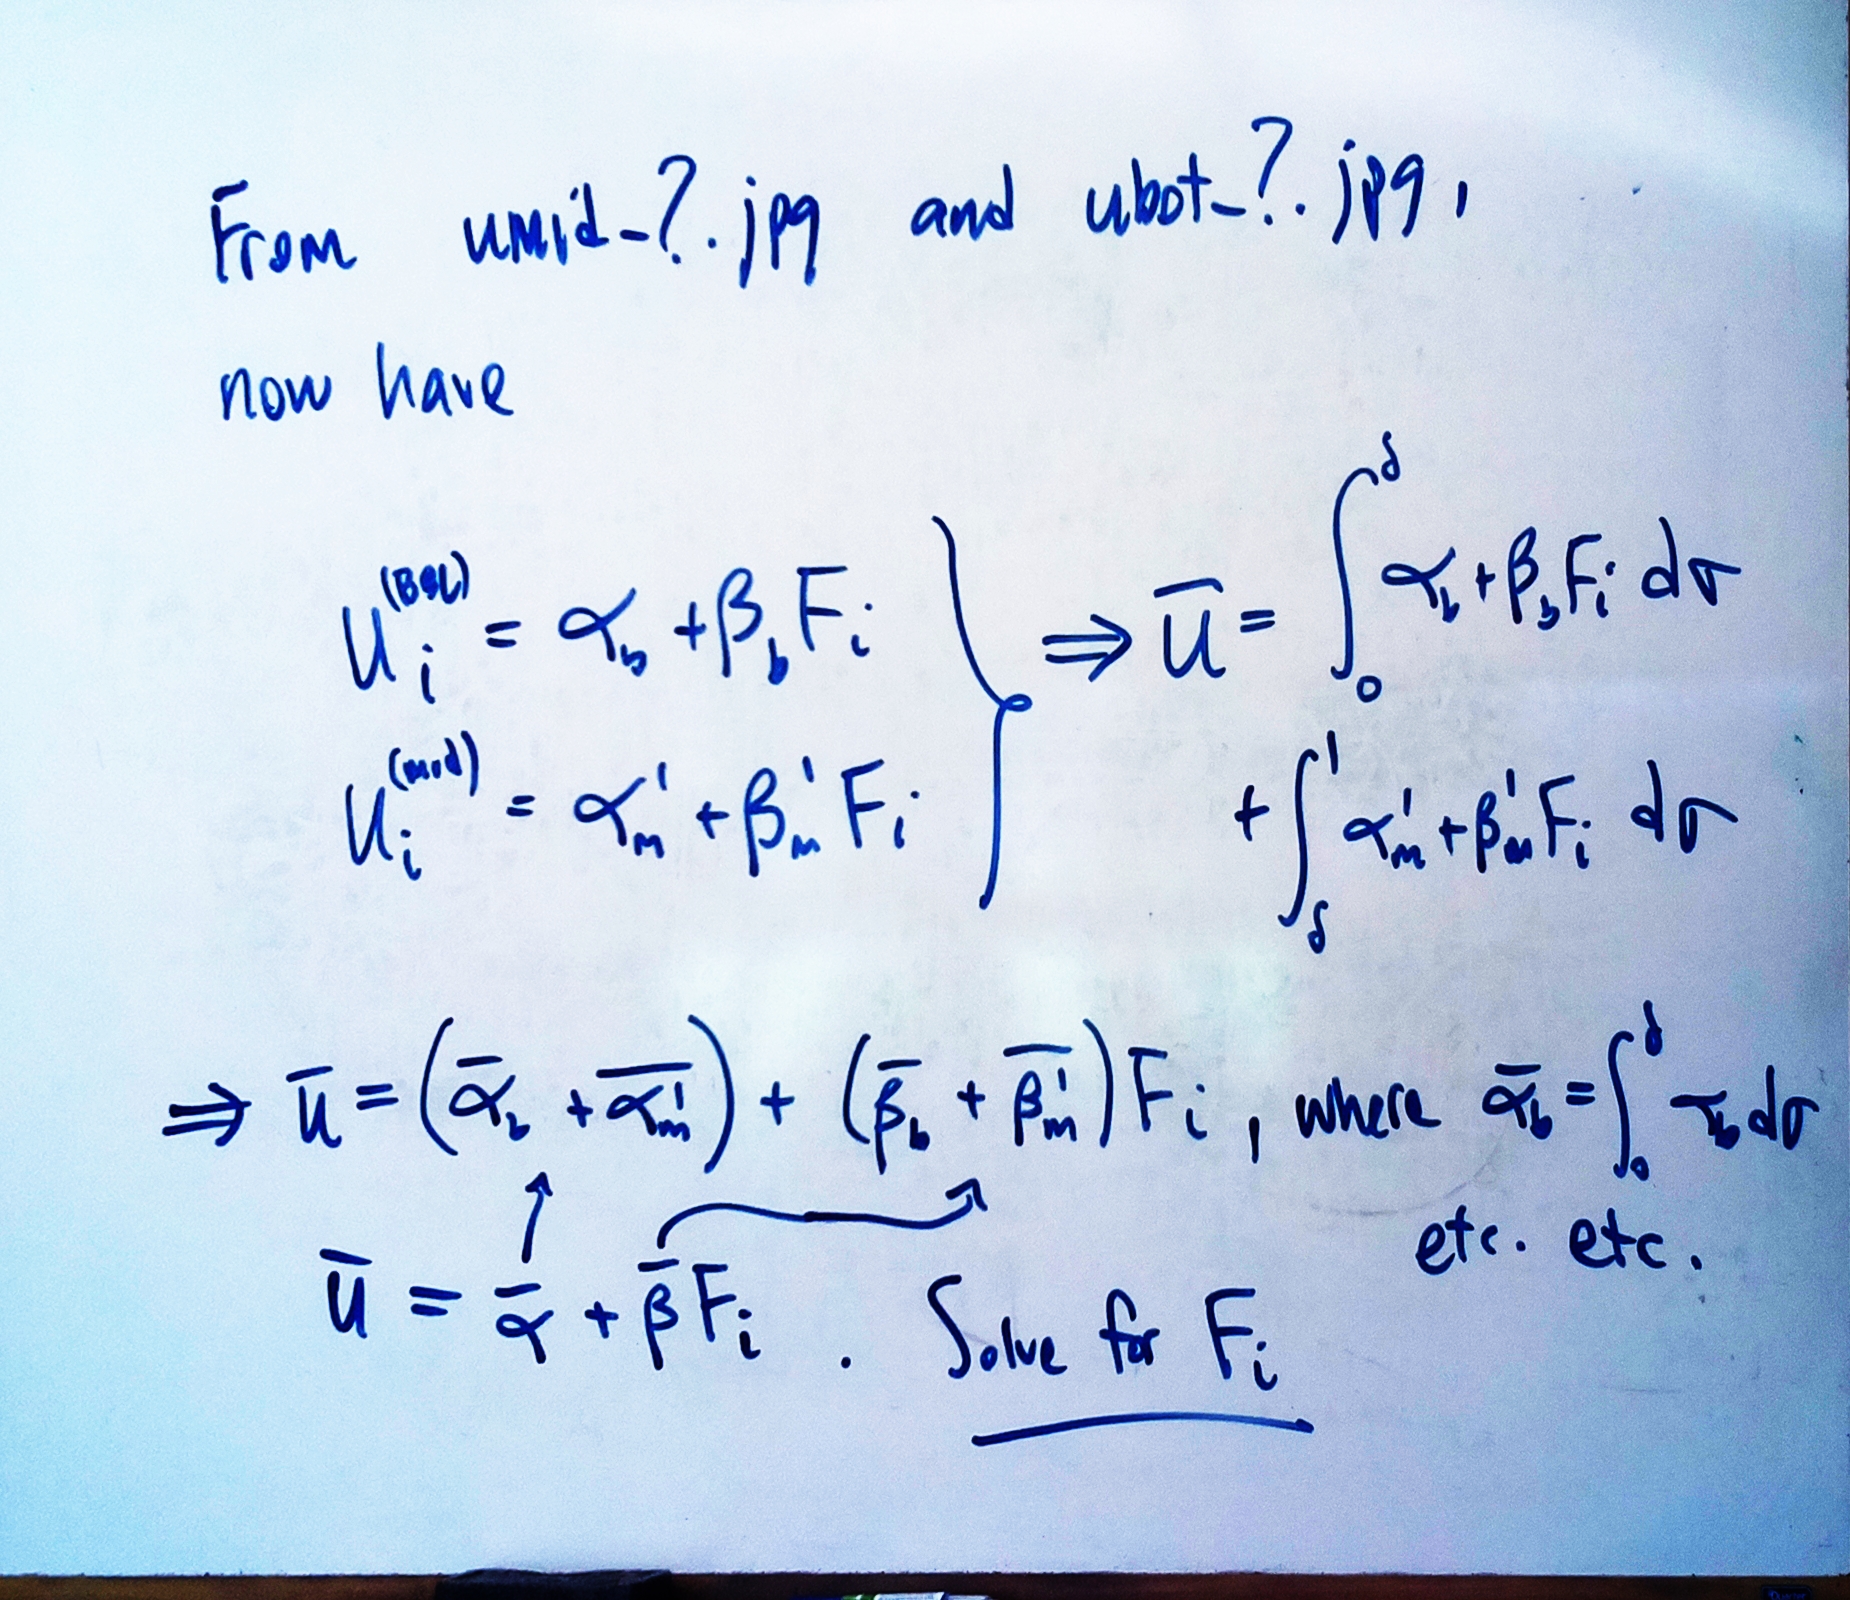 From umid-?.jpg and ubot-?.jpg,
now have
u_i^(BBL) = α_b + β_b F_i
u_i^(mid) = α_m' + β_m' F_i
⇒ ū = ∫_0^δ α_b + β_b F_i dσ
+ ∫_δ^1 α_m' + β_m' F_i dσ
⇒ ū = (ᾱ_b + \overline{α_m'}) + (β̄_b + \overline{β_m'}) F_i , where ᾱ_b = ∫_0^δ α_b dσ
etc. etc.
ū = ᾱ + β̄ F_i . Solve for F_i